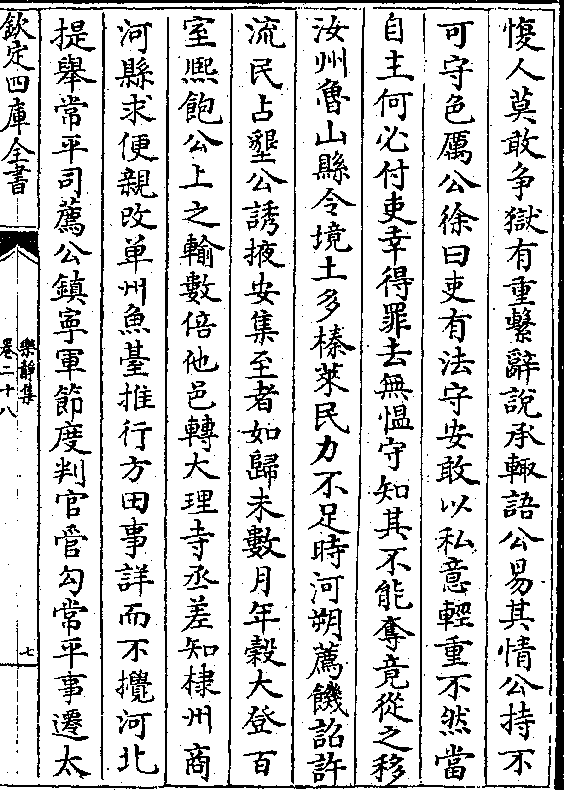 愎人莫敢争獄有重繫辭說承輙語公易其情公持不
可守色厲公徐曰吏有法守安敢以私意輕重不然當
自主何必付吏幸得罪去無愠守知其不能奪竟從之移
汝州魯山縣令境土多榛萊民力不足時河朔薦饑詔許
流民占墾公誘掖安集至者如歸未數月年穀大登百
室熈飽公上之輸數倍他邑轉大理寺丞差知棣州商
河縣求便親改单州魚䑓推行方田事詳而不擾河北
提舉常平司薦公鎮寜軍節度判官管勾常平事遷太
欽定四庫全書
樂靜集
卷二十八
七